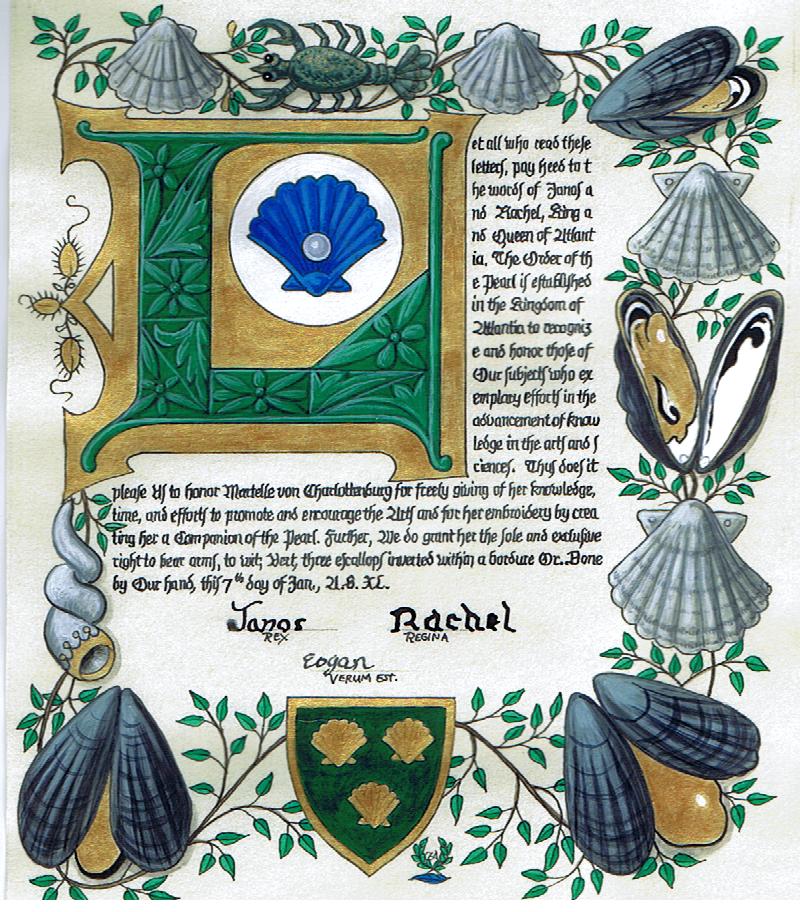 Let all who read these
letters, pay heed to t
he words of Janos a
nd Rachel, King a
nd Queen of Atlant
ia. The Order of th
e Pearl is established
in the Kingdom of
Atlantia to recogniz
e and honor those of
Our subjects who ex
emplary efforts in the
advancement of know
ledge in the arts and s
ciences. Thus does it
please Us to honor Martelle von Charlottenburg for freely giving of her knowledge,
time, and efforts to promote and encourage the Arts and for her embroidery by crea
ting her a Companion of the Pearl. Further, We do grant her the sole and exclusive
right to bear arms, to wit; Vert, three escallops inverted within a bordure Or. Done
by Our hand, this 7th day of Jan., A.S. XL.
Janos Rachel
REX REGINA
Eogan
VERUM EST.